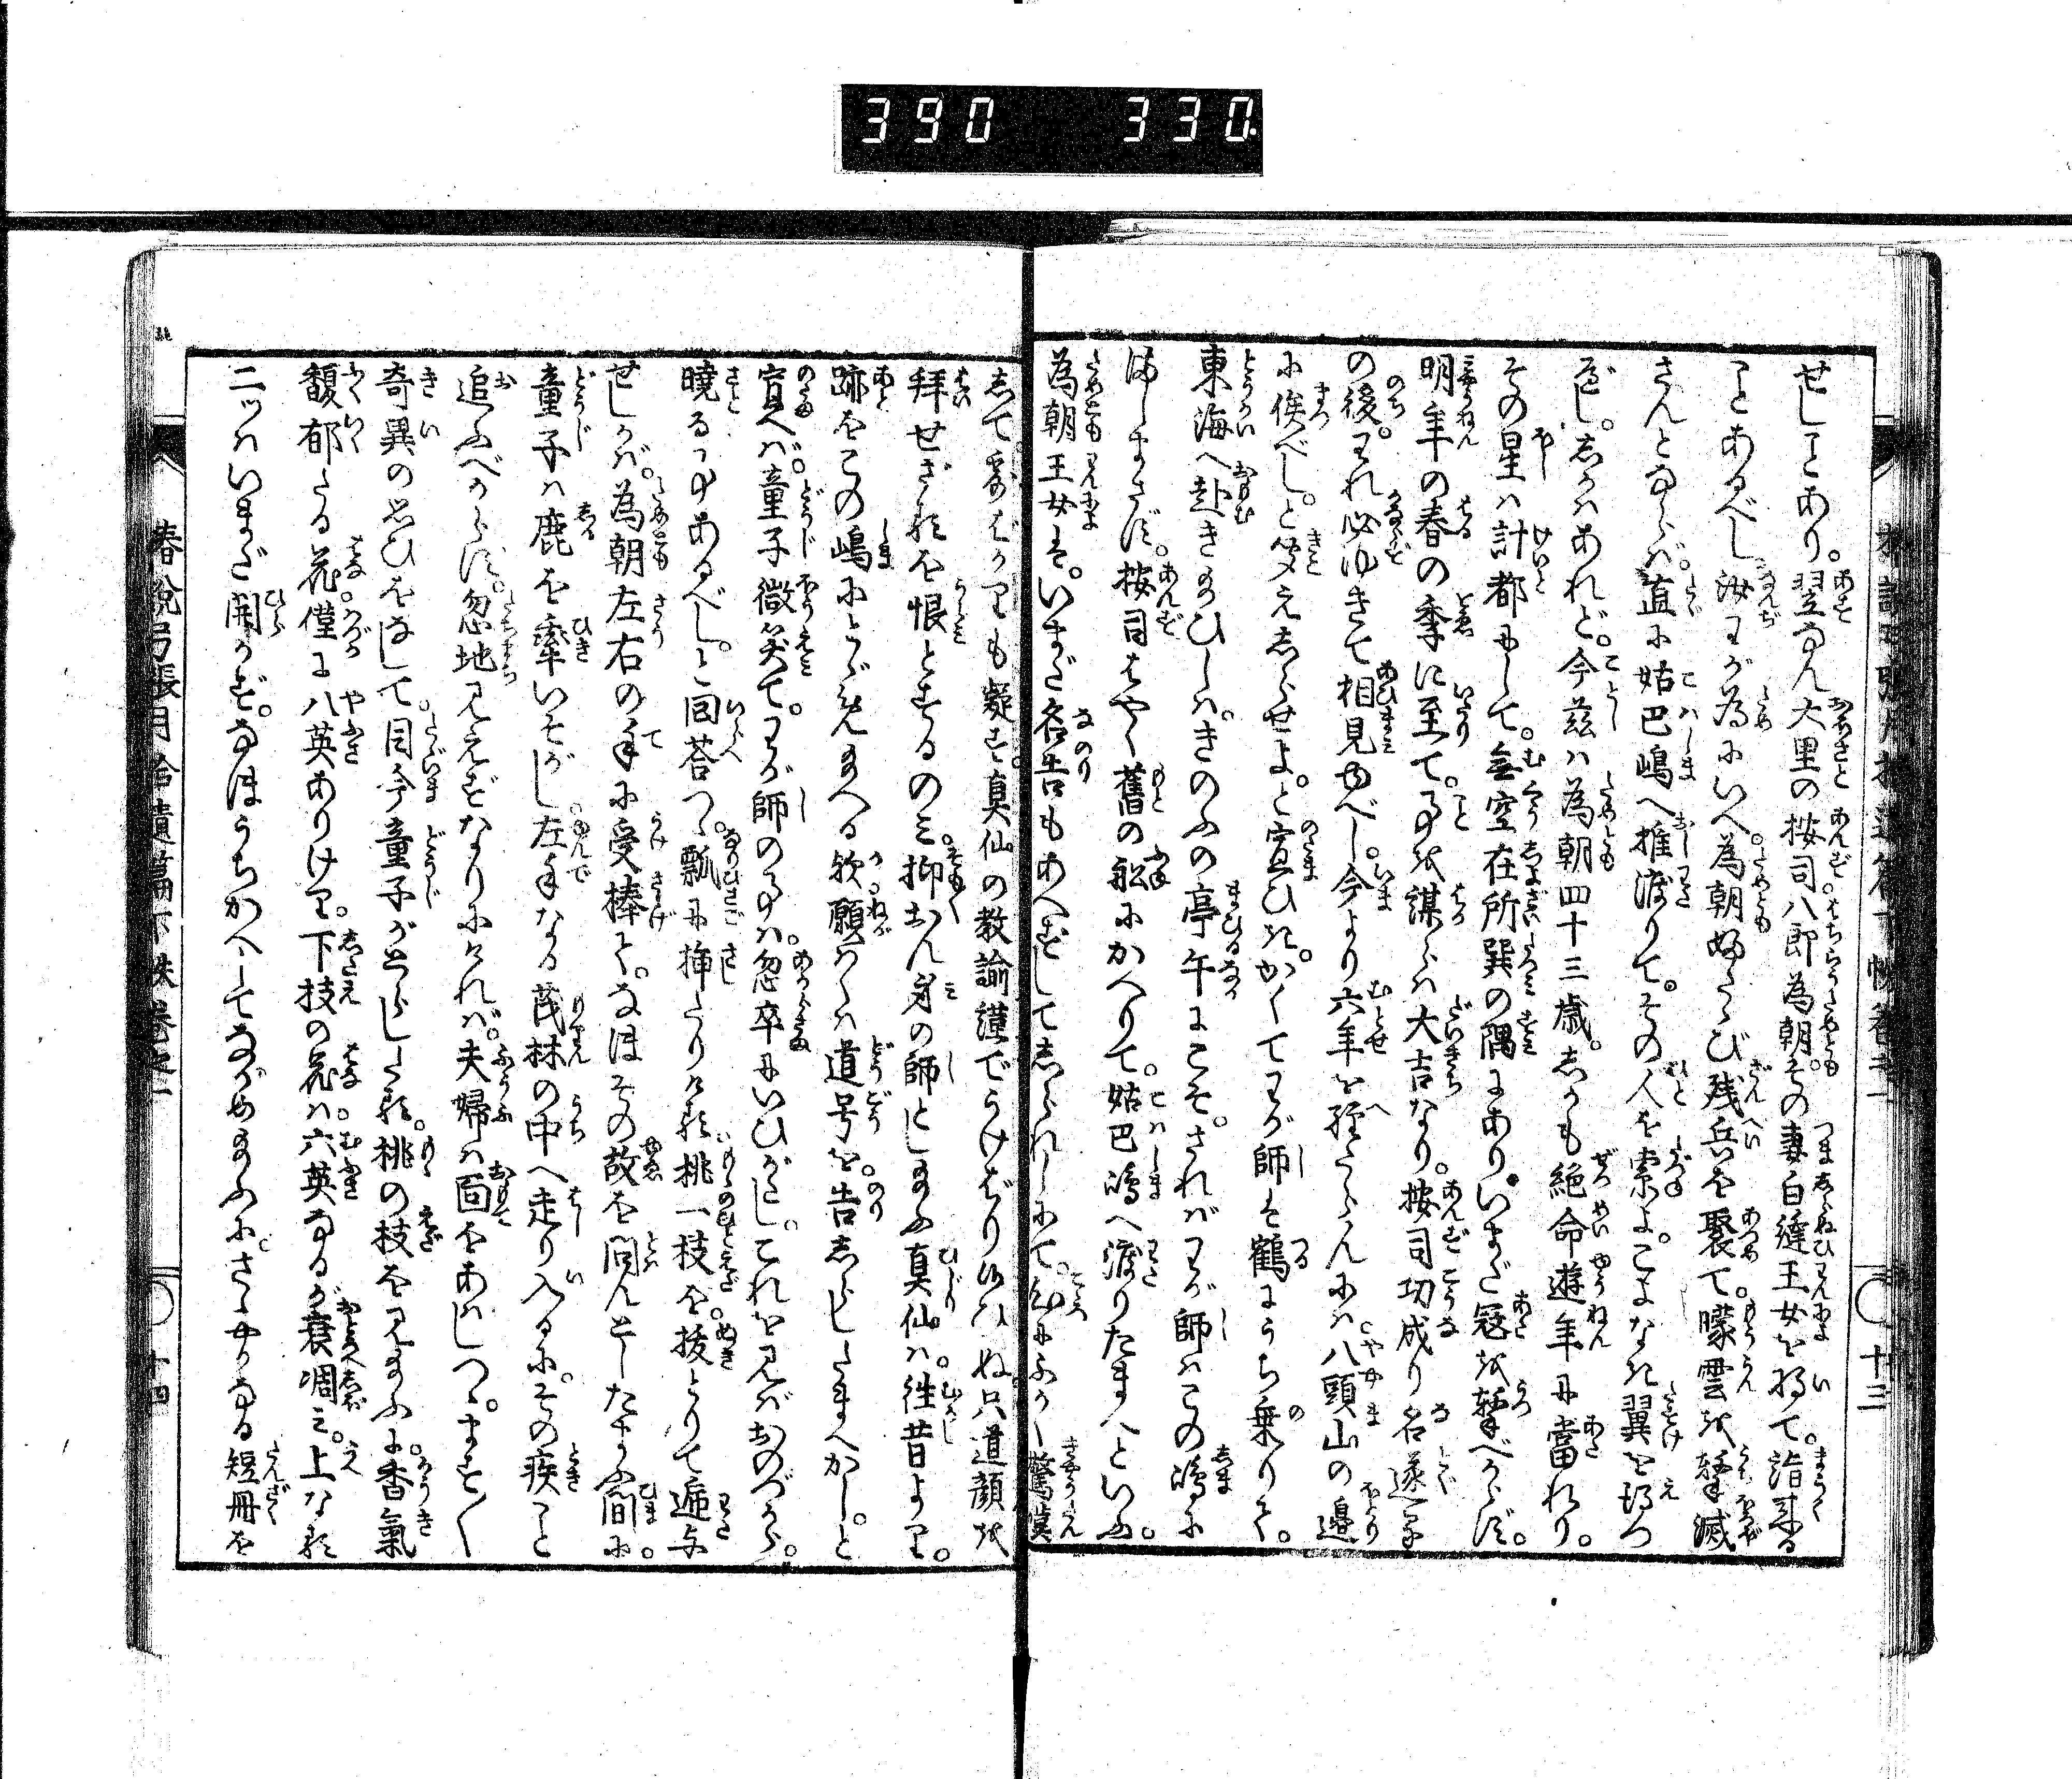 390 330
せしことあり。翌なん大里の按司八郎為朝。その妻白縫王女を将て。詣来る
ことあるべし。汝わが為にいへ。為朝ふたゝび残兵を聚て。曚雲を撃滅
さんとならば。直に姑巴嶋へ推渡りて。その人を索よ。こよなき翼を得つ
べし。しかはあれど。今茲は為朝四十三歳。しかも絶命遊年に當れり。
その星は計都にして。無空在所巽の隅にあり。いまだ冦を撃べからず。
明年の春の季に至て。事を謀らば大吉なり。按司功成り名遂て
の後。われ必ゆきて相見ゆべし。今より六年を経たらんには八頭山の邉
に俟べし。と聞えしらせよ。と宣ひき。かくてわが師は鶴にうち乗りて。
東海へ赴き給ひしは。きのふの亭午にこそ。さればわが師はこの嶋に
ましまさず。按司はやく舊の舩にかへりて。姑巴嶋へ渡りたまへといふ。
為朝王女は。いまだ名告もあへずしてしられしにて。幼にふかく驚嘆
して。露ばかりも疑ず。真仙の教諭謹でうけ給はり候ひぬ。只道顔を
拝せざるを恨とするのみ。抑おん身の師とし給ふ真仙は。往昔より。
跡をこの嶋にとゞめ給へる歟。願くは道号を。告しらしたまへかし。と
宣へば。童子微笑て。わが師の事は。忽卒にいひがたし。これを見ばおのづから。
曉る事あるべし。と回荅つゝ。瓢に挿たりける。桃一枝を。抜とりて逓与
せしかば。為朝左右の手に受捧て。なほその故を問んとしたまふ間に。
童子は鹿を牽いそがし。左手なる茂林の中へ走り入るに。その疾こと
追ふべからず。忽地見えずなりにければ。夫婦は面をあはしつゝ。ますます
奇異の思ひをなして。目今童子がとらしたる。桃の枝を見給ふに。香氣
馥郁たる花。僅に八英ありけり。下枝の花は。六英なるが衰凋み。上なる
二ッはいまだ開かず。なほうちかへしてながめ給ふに。さゝやかなる短冊を
椿説弓張月拾遺篇下帙巻之一
十三
十四